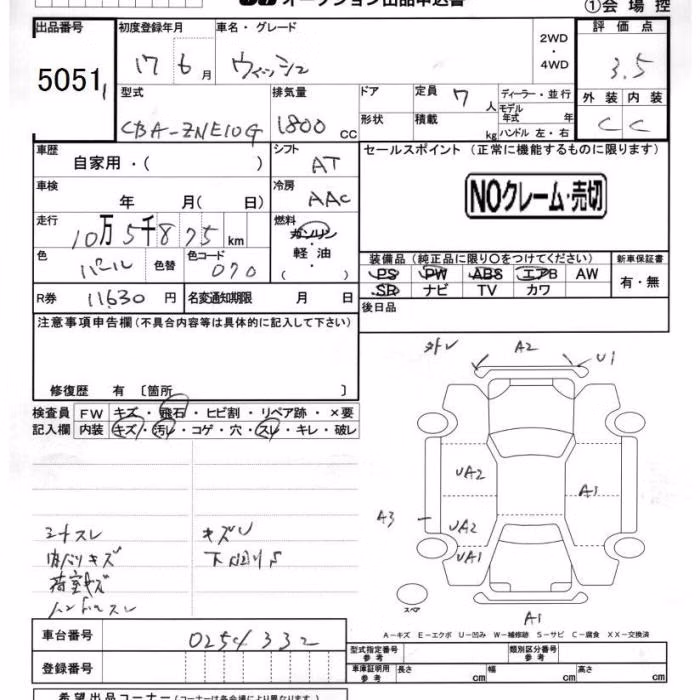 オークション出品申込書 ①会場控
出品番号 初度登録年月 車名・グレード 2WD・4WD 評価点
5051 17 6月 ウィッシュ 3.5
型式 排気量 ドア 定員 7人 ディーラー・並行 外装 内装
CBA-ZNE10G 1800cc 形状 積載 kg モデル年式 年 ハンドル 左・右 C C
車歴 シフト セールスポイント (正常に機能するものに限ります)
自家用・( ) AT
車検 冷房 NOクレーム・売切
年 月( 日) AAC
走行 燃料
10万5千875km ガソリン
軽油
色 色替 色コード ( ) 装備品(純正品に限り○をつけてください) 新車保証書
パール 070 PS PW ABS エアB AW 有・無
R券 11630円 名変通知期限 月 日 SR ナビ TV カワ
注意事項申告欄(不具合内容等は具体的に記入して下さい) 後日品
修復歴 有 〔箇所 〕
検査員 FW キズ・飛石・ヒビ割・リペア跡・×要
記入欄 内装 キズ・汚レ・コゲ・穴・スレ・キレ・破レ
外レ A2 U1
UA2 A1
A3 UA2
UA1
シートスレ キズU
内バリキズ 下回りS
荷室キズ
ハンドルスレ
スペア
A1
A-キズ E-エクボ U-凹み W-補修跡 S-サビ C-腐食 XX-交換済
車台番号 0254332
登録番号
型式指定番号 参考 類別区分番号 参考
車庫証明用 参考 長さ cm 幅 cm 高さ cm
希望出品コーナー(コーナーは各会場により異なります)